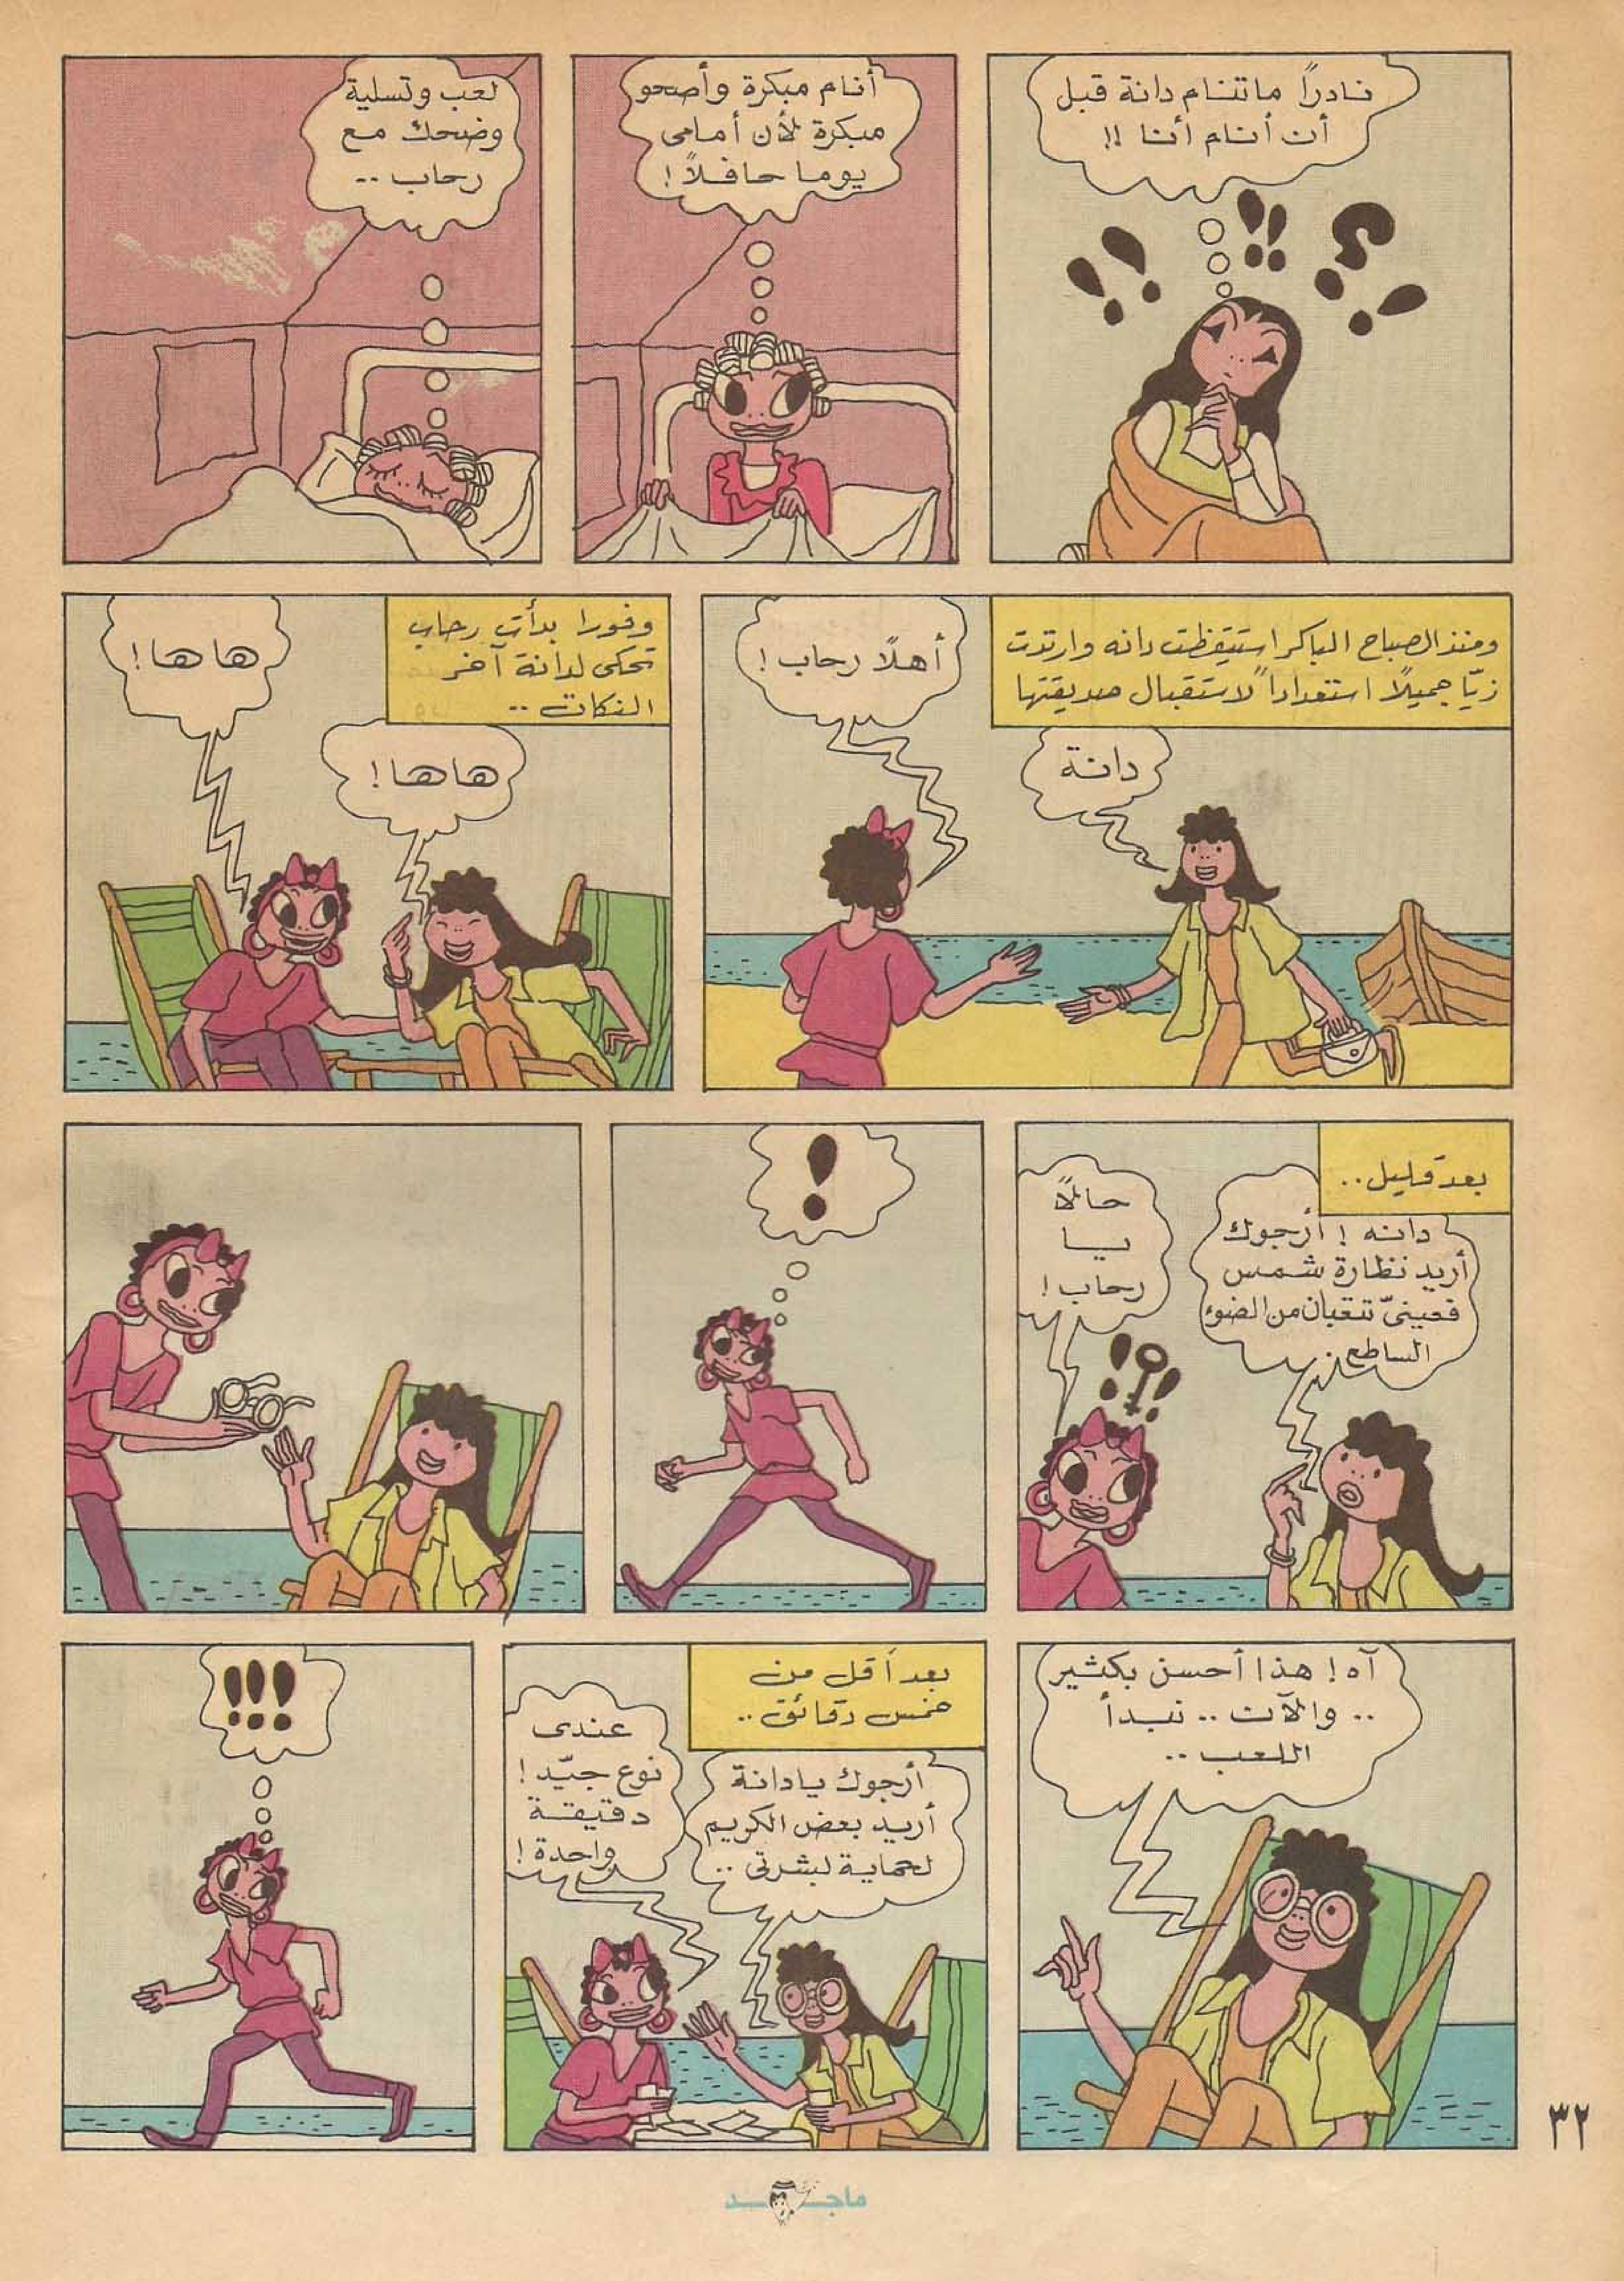 نادرًا ما تنام دانة قبل
أن أنام أنا !!
أنام مبكرة وأصحو
مبكرة لأن أمامى
يوما حافلاً !
لعب وتسلية
وضحك مع
رحاب ..
ومنذ الصباح الباكر استيقظت دانه وارتدت
زيّا جميلاً استعداداً لاستقبال صديقتها
دانة
أهلًا رحاب !
وفورا بدأت رحاب
تحكى لدانة آخر
النكات ..
هاها !
هاها !
بعد قليل ..
دانه ! أرجوك
أريد نظارة شمس
فعينىّ تتعبان من الضوء
الساطع
حالاً
يا
رحاب !
!
آه ! هذا أحسن بكثير
.. والآن .. نبدأ
اللعب ..
بعد أقل من
خمس دقائق ..
أرجوك يا دانة
أريد بعض الكريم
لحماية بشرتى ..
عندى
نوع جيّد !
دقيقة
واحدة !
!!!
٣٢
ماجد